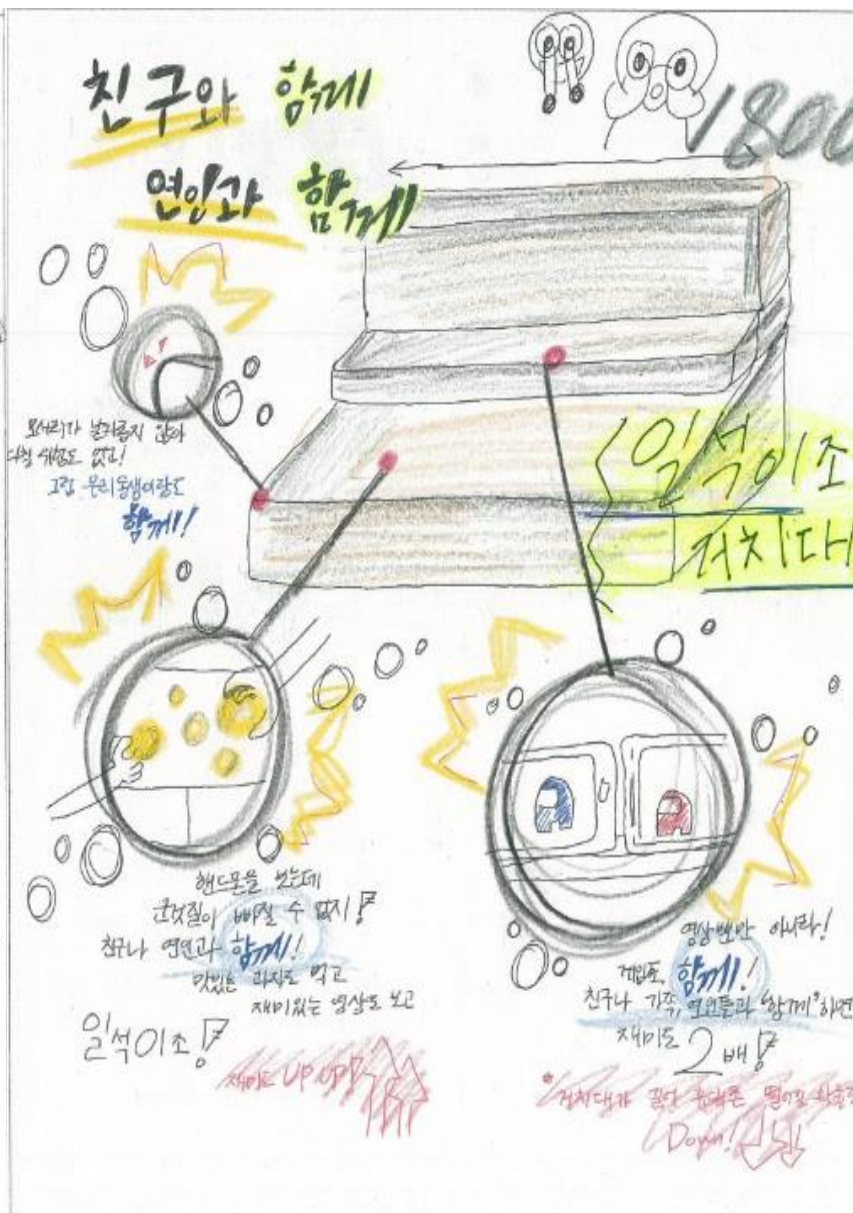 친구와 함께
연인과 함께
1800
모서리가 날카롭지 않아
다칠 위험도 없고!
그럼 우리 동생이랑도
함께!
일석이조
거치대
핸드폰을 보는데
군것질이 빠질 수 없지!
친구나 연인과 함께!
맛있는 과자도 먹고
재미있는 영상도 보고
일석이조!
재미도 UP UP!
영상뿐만 아니라!
게임도 함께!
친구나 가족, 연인들과 "함께"하면
재미도 2배!
*거치대가 길어 핸드폰 떨어질 확률
Down!